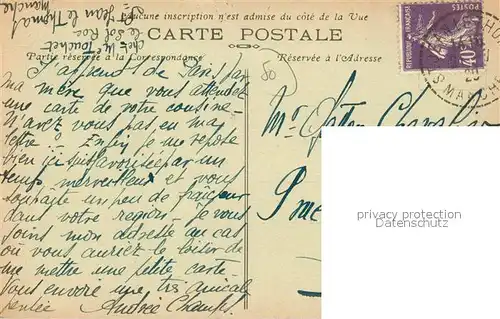 Aucune inscription n'est admise du côté de la Vue
CARTE POSTALE
Partie réservée à la Correspondance
Réservée à l'Adresse
chez Mr Touchet
le Sol Roc
St Jean le Thomas
Manche
J'apprend de Paris par
ma mère que vous attendez
une carte de votre cousine
N'avez vous pas eu ma
lettre? Enfin je me repose
bien ici suis favorisée par un
temps merveilleux et vous
souhaite un peu de fraîcheur
dans votre région. Je vous
joins mon adresse au cas
où vous auriez le loisir de
me mettre une petite carte.
Vous envoie une très amicale
pensée Andrée
Mr
50
40
MANCHE
privacy protection
Datenschutz